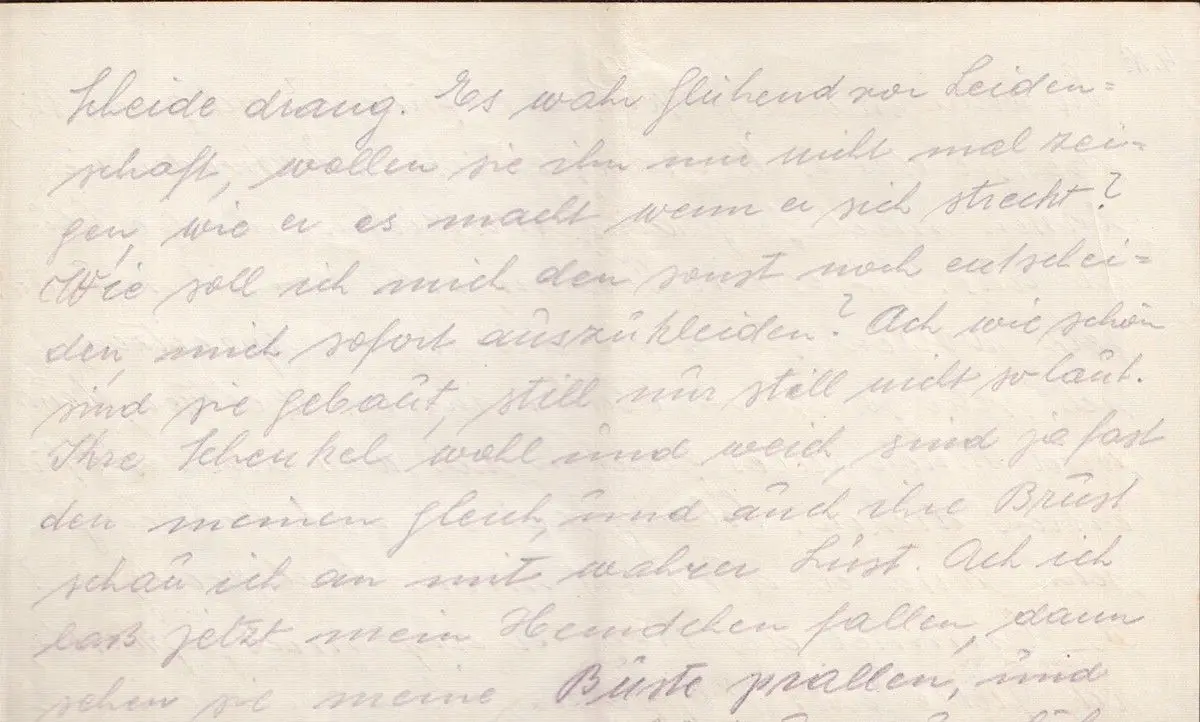 Scheide drang. Es wahr glühend vor Leiden=
schaft, wollen sie ihn mir nicht mal zei=
gen, wie er es macht wenn er sich streckt?
Wie soll ich mich den sonst noch entschei=
den, mich sofort auszukleiden? Ach wie schön
sind sie gebaut, still nur still nicht so laut.
Ihre Schenkel wohl und weich, sind ja fast
den meinen gleich, und auch ihre Brust
schau ich an mit wahrer Lust. Ach ich
laß jetzt mein Hemdchen fallen, dann
sehen sie meine Büste prallen, und